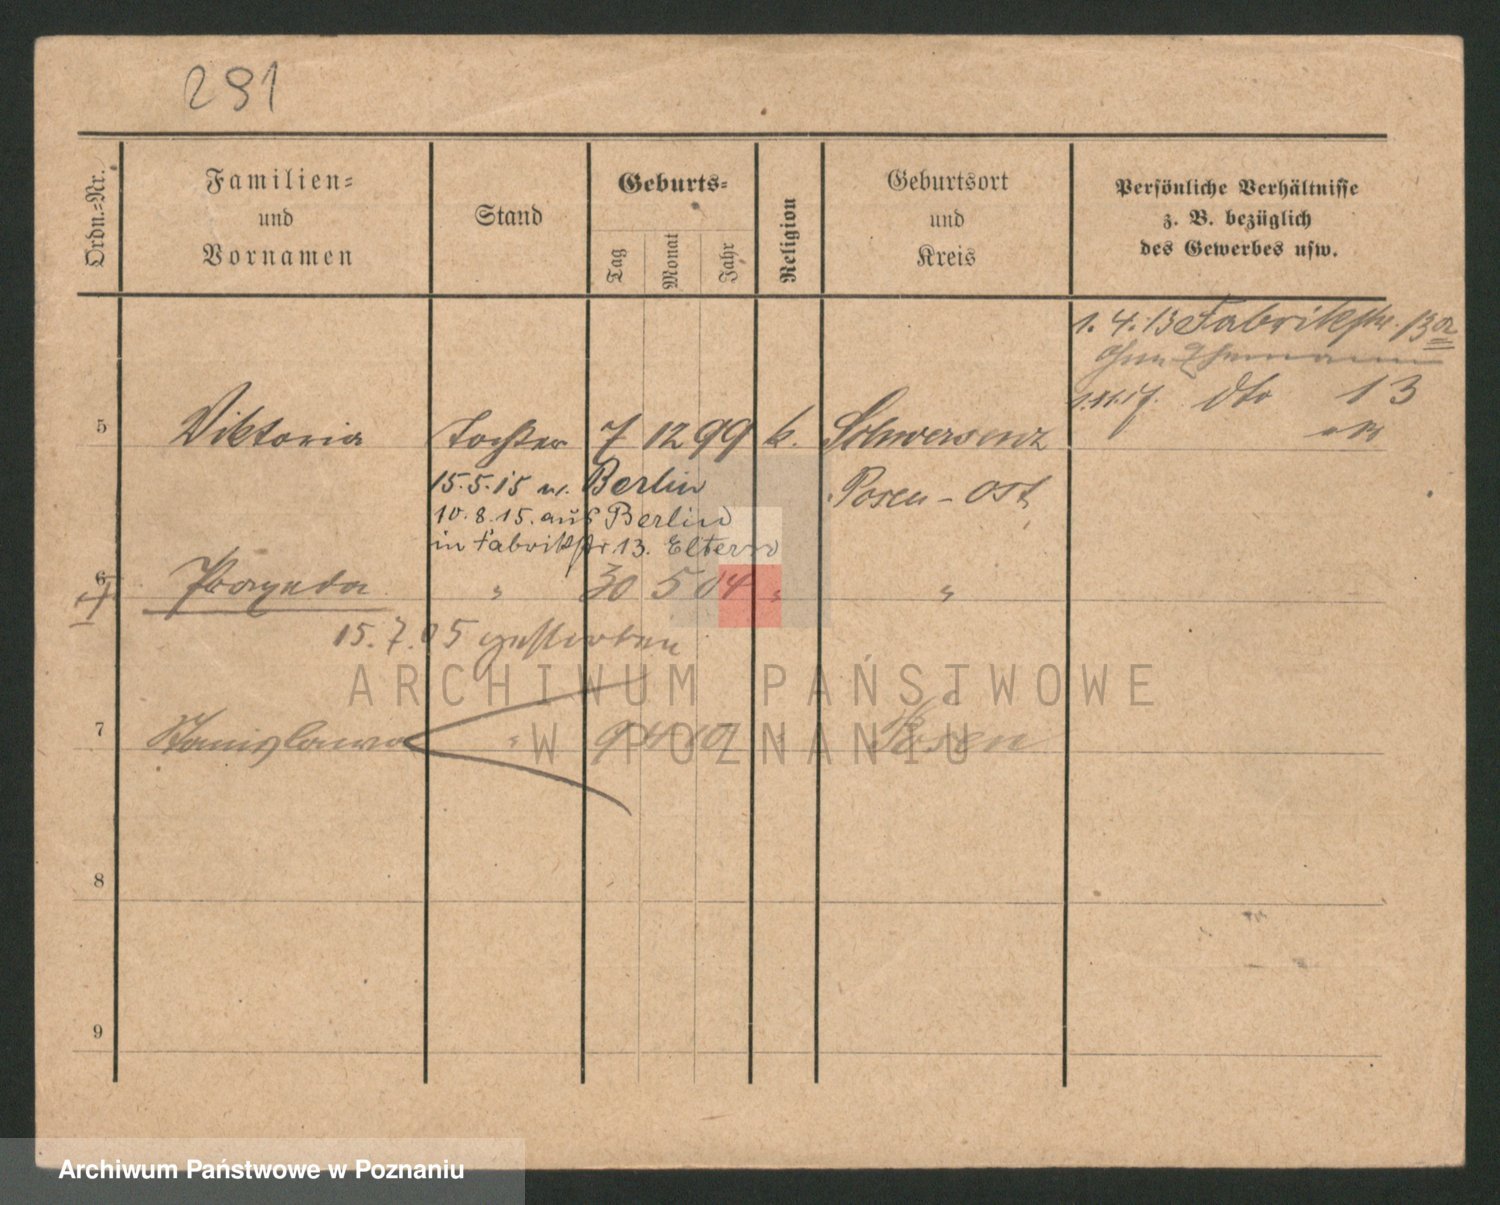 291
Ordn.-Nr.
Familien-
und
Vornamen
Stand
Geburts-
Tag
Monat
Jahr
Religion
Geburtsort
und
Kreis
Persönliche Verhältnisse
z. B. bezüglich
des Gewerbes usw.
1. 4. 13 Fabrikstr. 13a
ohne Ehemann
dto 13
5 Viktoria Tochter 7 12 99 k. Schwersenz
15.5.15 n. Berlin
Posen-Ost
10.8.15. aus Berlin
in Fabrikstr 13. Eltern
6 " 30 5 04 " "
15.7.05 gestorben
ARCHIWUM PAŃSTWOWE
7 Stanislawa " 9 Posen
W POZNANIU
8
9
Archiwum Państwowe w Poznaniu